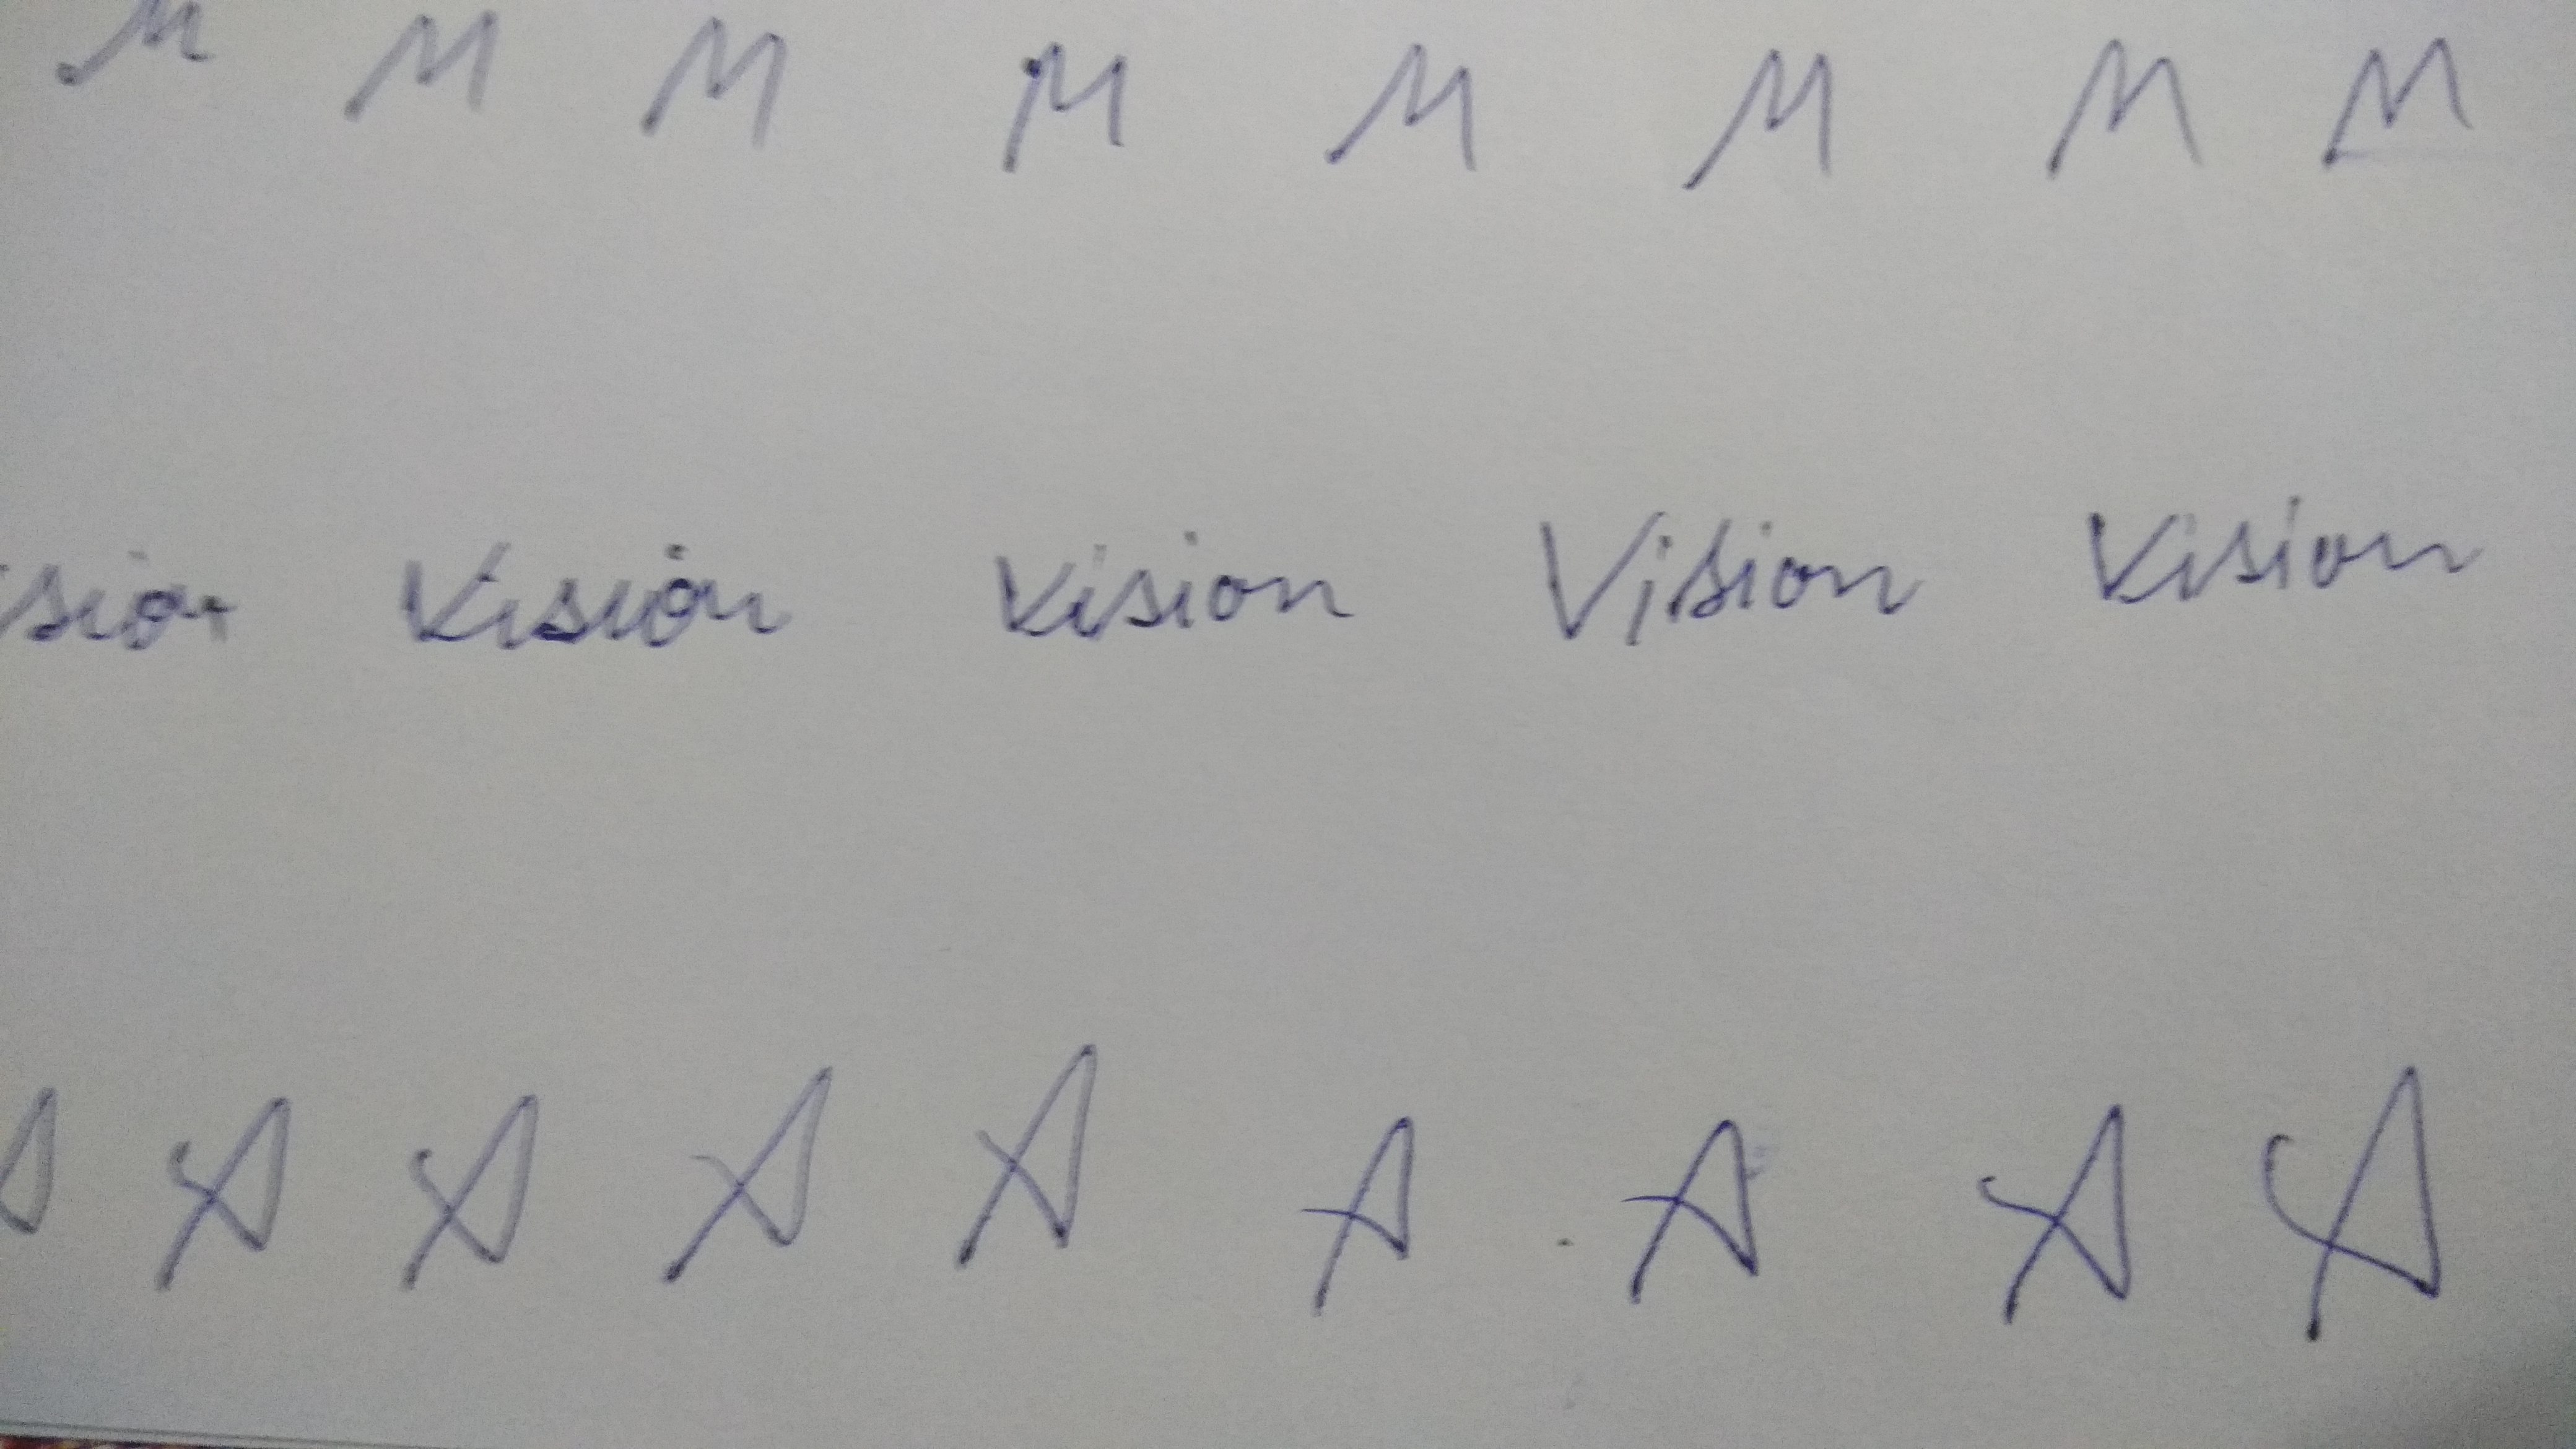 M M M M M M M M
ision Vision Vision Vision Vision
A A A A A A A A A